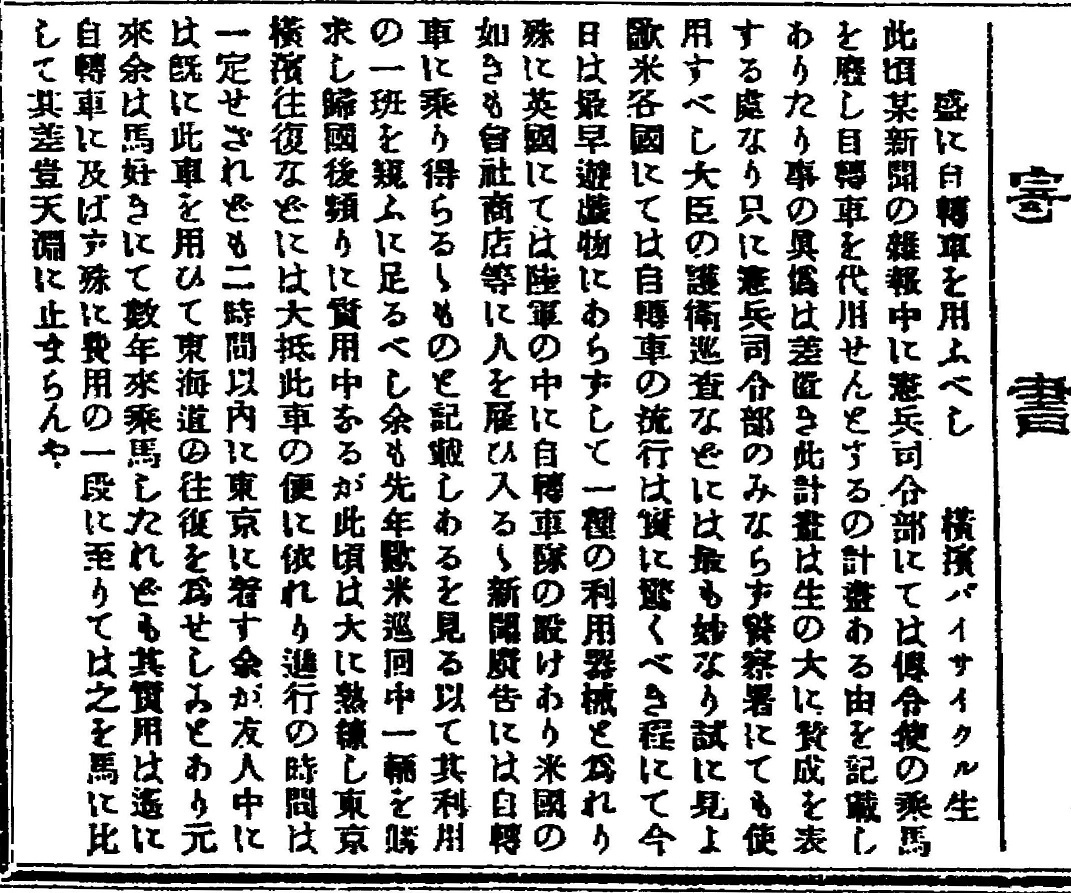 寄書
盛に自轉車を用ふべし　橫濱バイサイクル生
此頃某新聞の雜報中に憲兵司令部にては傳令使の乘馬
を廢し自轉車を代用せんとするの計畫わる由を記載し
わりたり事の眞僞は差置き此計畫は生の大に賛成を表
する處なり只に憲兵司令部のみならず警察署にても使
用すべし大臣の護衛巡査などには最も妙なり試に見よ
歐米各國にては自轉車の流行は實に驚くべき程にて今
日は最早遊戯物にわらずして一種の利用器械と爲れり
殊に英國にては陸軍の中に自轉車隊の設けわり米國の
如きも會社商店等に人を雇ひ入るゝ新聞廣告には自轉
車に乘り得らるゝものと記載しわるを見る以て其利用
の一班を窺ふに足るべし余も先年歐米巡回中一輛を購
求し歸國後頻りに賢用中なるが此頃は大に熟練し東京
橫濱往復などには大抵此車の便に依れり進行の時間は
一定せざれども二時間以内に東京に着す余が友人中に
は既に此車を用ひて東海道の往復を爲せしみとわり元
來余は馬好きにて數年來乘馬したれども其實用は遙に
自轉車に及ばず殊に費用の一段に至りては之を馬に比
して其差豈天淵に止まらんや